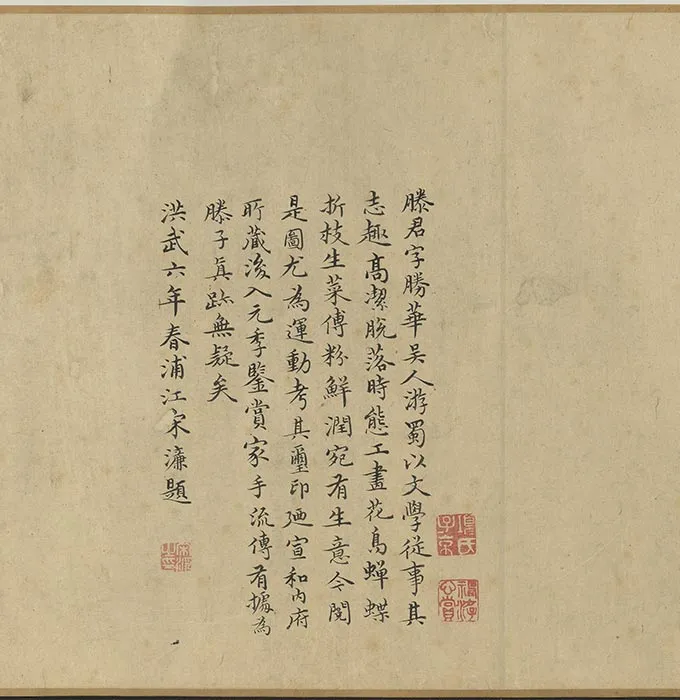 滕君字勝華吳人游蜀以文學從事其
志趣高潔脫落時態工畫花鳥蟬蝶
折枝生菜傅粉鮮潤宛有生意今閱
是圖尤為運動考其璽印廼宣和內府
所藏後入元季鑒賞家手流傳有據為
滕子真跡無疑矣
洪武六年春浦江宋濂題
項氏子京